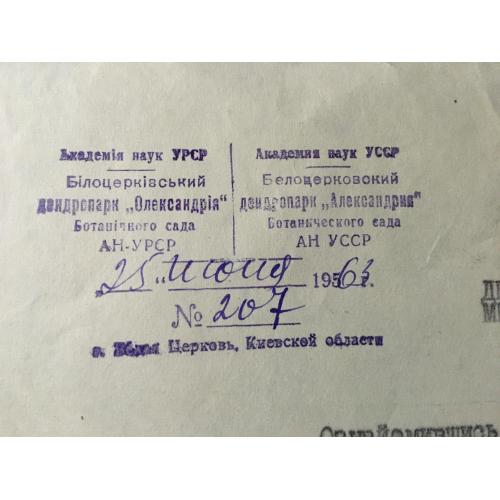 Академія наук УРСР
Білоцерківський
дендропарк „Олександрія"
Ботанічного сада
АН-УРСР
Академия наук УССР
Белоцерковский
дендропарк „Александрия"
Ботанического сада
АН УССР
„25" июня 1963 г.
№ 207
г. Белая Церковь, Киевской области
Ознайомившись